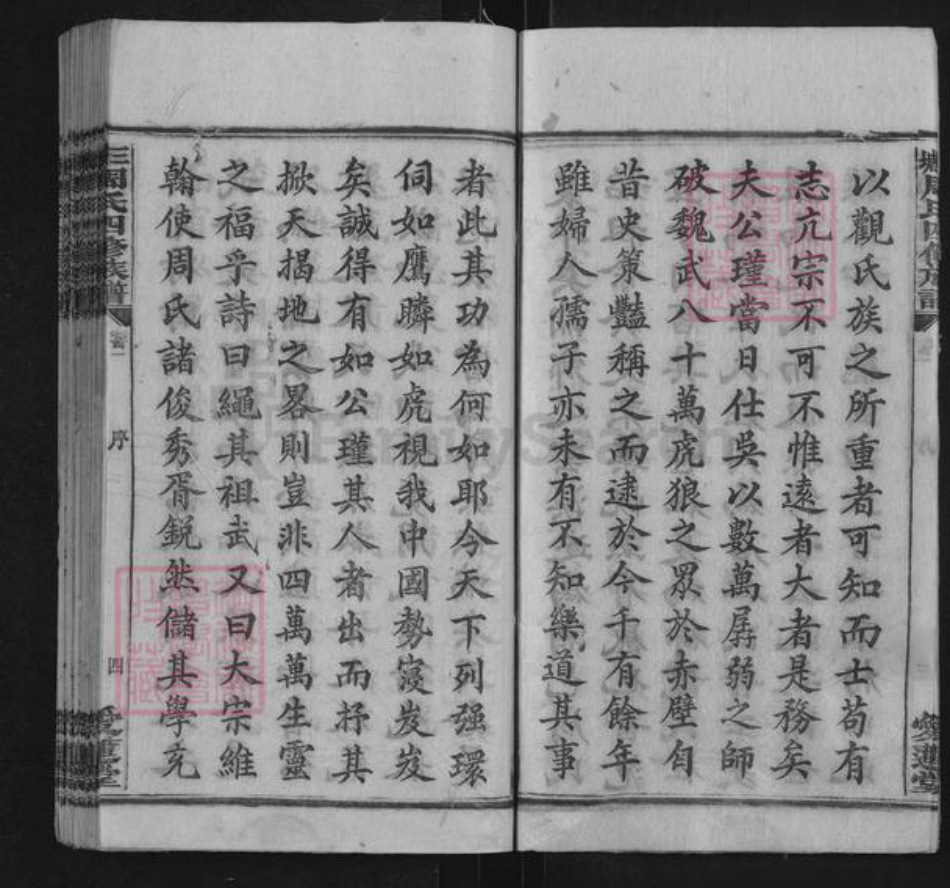 以觀氏族之所重者可知而士苟有
志亢宗不可不惟遠者大者是務矣
夫公瑾當日仕吳以數萬孱弱之師
破魏武八十萬虎狼之眾於赤壁自
昔史策豔稱之而逮於今千有餘年
雖婦人孺子亦未有不知樂道其事
者此其功為何如耶今天下列强環
伺如鷹瞵如虎視我中國勢寖岌岌
矣誠得有如公瑾其人者出而抒其
掀天揭地之畧則豈非四萬萬生靈
之福乎詩曰繩其祖武又曰大宗維
翰使周氏諸俊秀胥銳然儲其學充
周氏四修族譜
序
四
FamilySearch